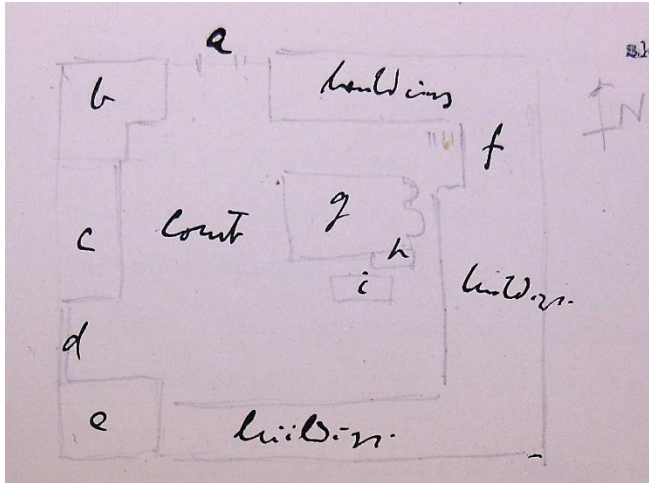 a
b
buildings
f
N
g
c
court
h
i
buildings
d
e
buildings